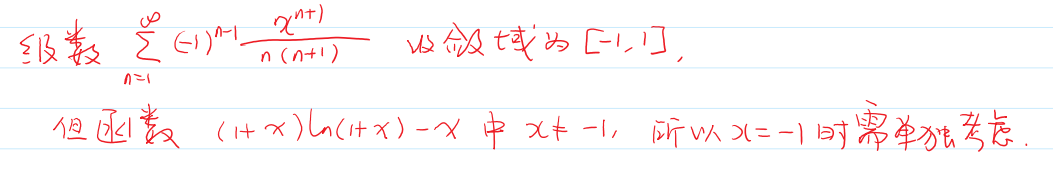 级数 \sum_{n=1}^{\infty} (-1)^{n-1} \frac{x^{n+1}}{n(n+1)} 收敛域为 [-1,1],
但函数 (1+x)ln(1+x)-x 中 x≠-1, 所以x=-1时需单独考虑.